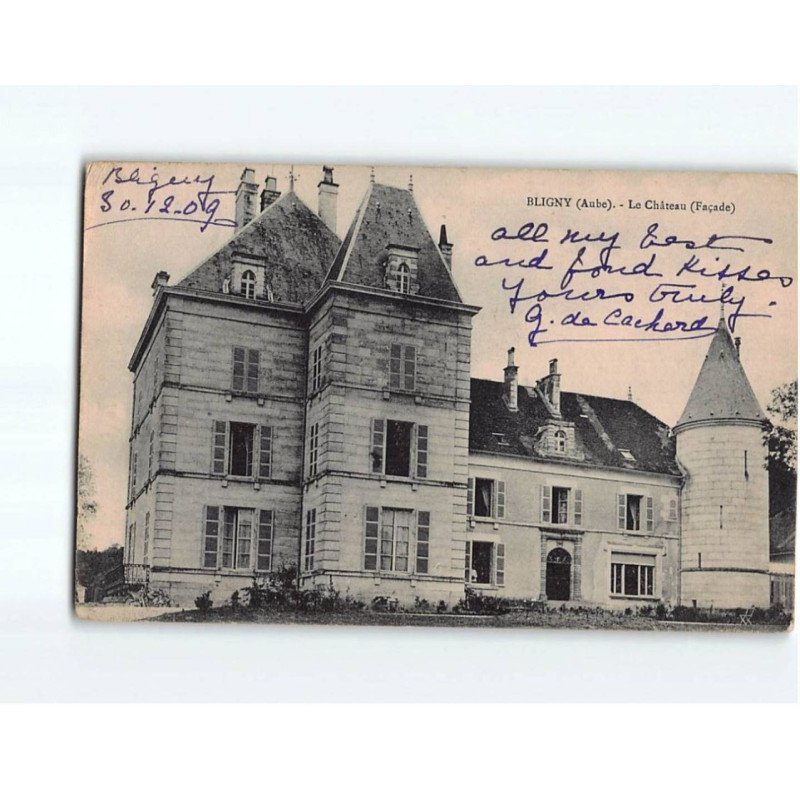 Bligny
30.12.09
BLIGNY (Aube). - Le Château (Façade)
all my best
and fond Kisses
Yours truly.
G. de Cachard